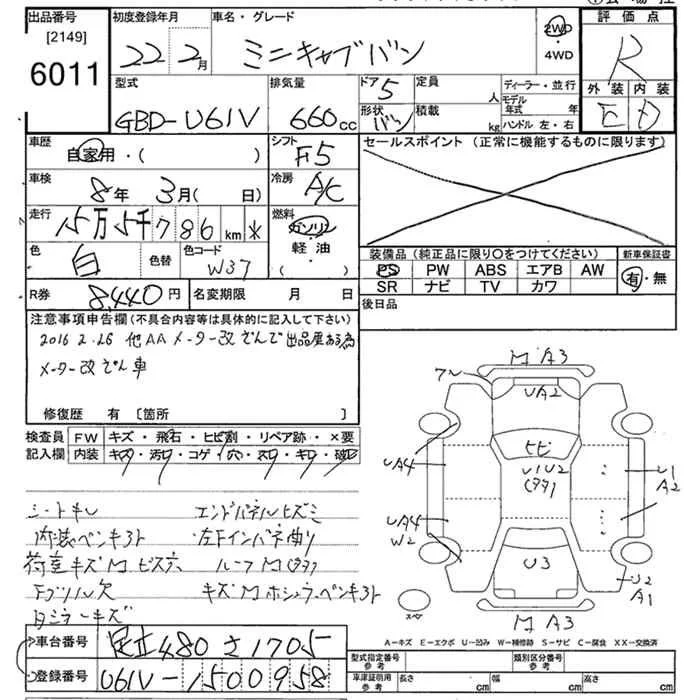 出品番号
[2149]
6011
初度登録年月
22年2月
車名・グレード
ミニキャブバン
2WD
・
4WD
評価点
R
型式
GBD-U61V
排気量
660cc
ドア 5
形状 バン
定員 人
積載 kg
ディーラー・並行
モデル年式 年
ハンドル 左・右
外装 内装
E D
車歴
自家用・( )
シフト
F5
セールスポイント (正常に機能するものに限ります)
車検
8年 3月( 日)
冷房
A/C
走行
15万5千786km
燃料
ガソリン
軽・油
( )
色
白
色替
色コード
W37
装備品 (純正品に限り〇をつけてください)
新車保証書
PS PW ABS エアB AW
SR ナビ TV カワ
有・無
R券 8,440円
名変期限 月 日
後日品
注意事項申告欄(不具合内容等は具体的に記入して下さい)
2016 2.26 他AA メーター改ざんで出品歴ある為
メーター改ざん車
修復歴 有 〔箇所 〕
検査員 FW キズ・飛石・ヒビ割・リペア跡・×要
記入欄 内装 キズ・汚れ・コゲ・穴・スレ・キレ・破レ
シートキレ エンドパネルヒズミ
内装ペンキヨゴレ 左右インパネ曲り
荷室キズM ビス穴
欠
M A3
UA2
ヒビ
U1U2
UA4
UA4
W2
U1
A2
U3
U2
A1
M A3
スペア
A-キズ E-エクボ U-凹み W-補修跡 S-サビ C-腐食 XX-交換済
車台番号 足立480さ1705
登録番号 U61V-1500958
型式指定番号
参考
類別区分番号
参考
車庫証明用
参考
長さ cm
幅 cm
高さ cm